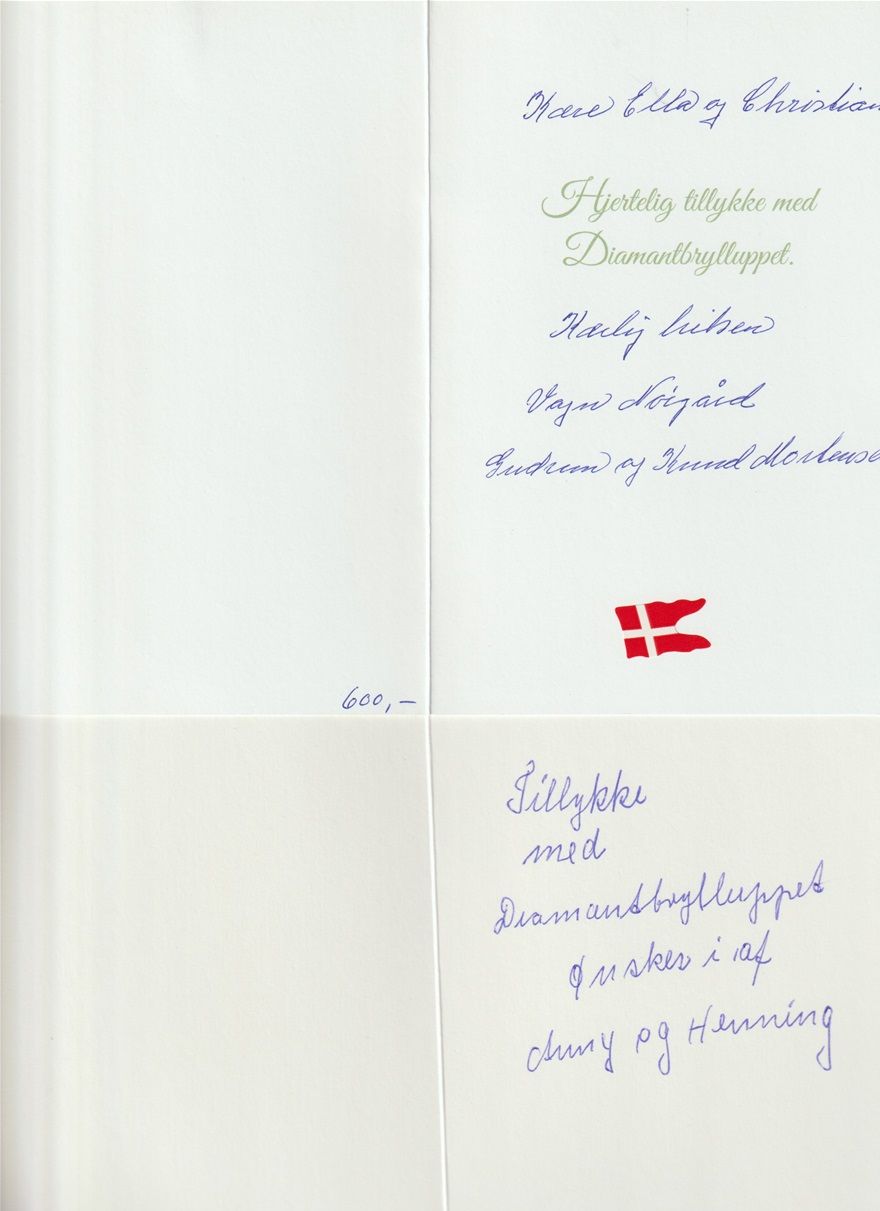 Kære Ella og Christian
Hjertelig tillykke med
Diamantbrylluppet.
Kærlig hilsen
Vagn Nöigård
Gudrun og Knud Mortense
600,-
Tillykke
med
Diamantbrylluppet
Ønsker i af
Anny og Henning